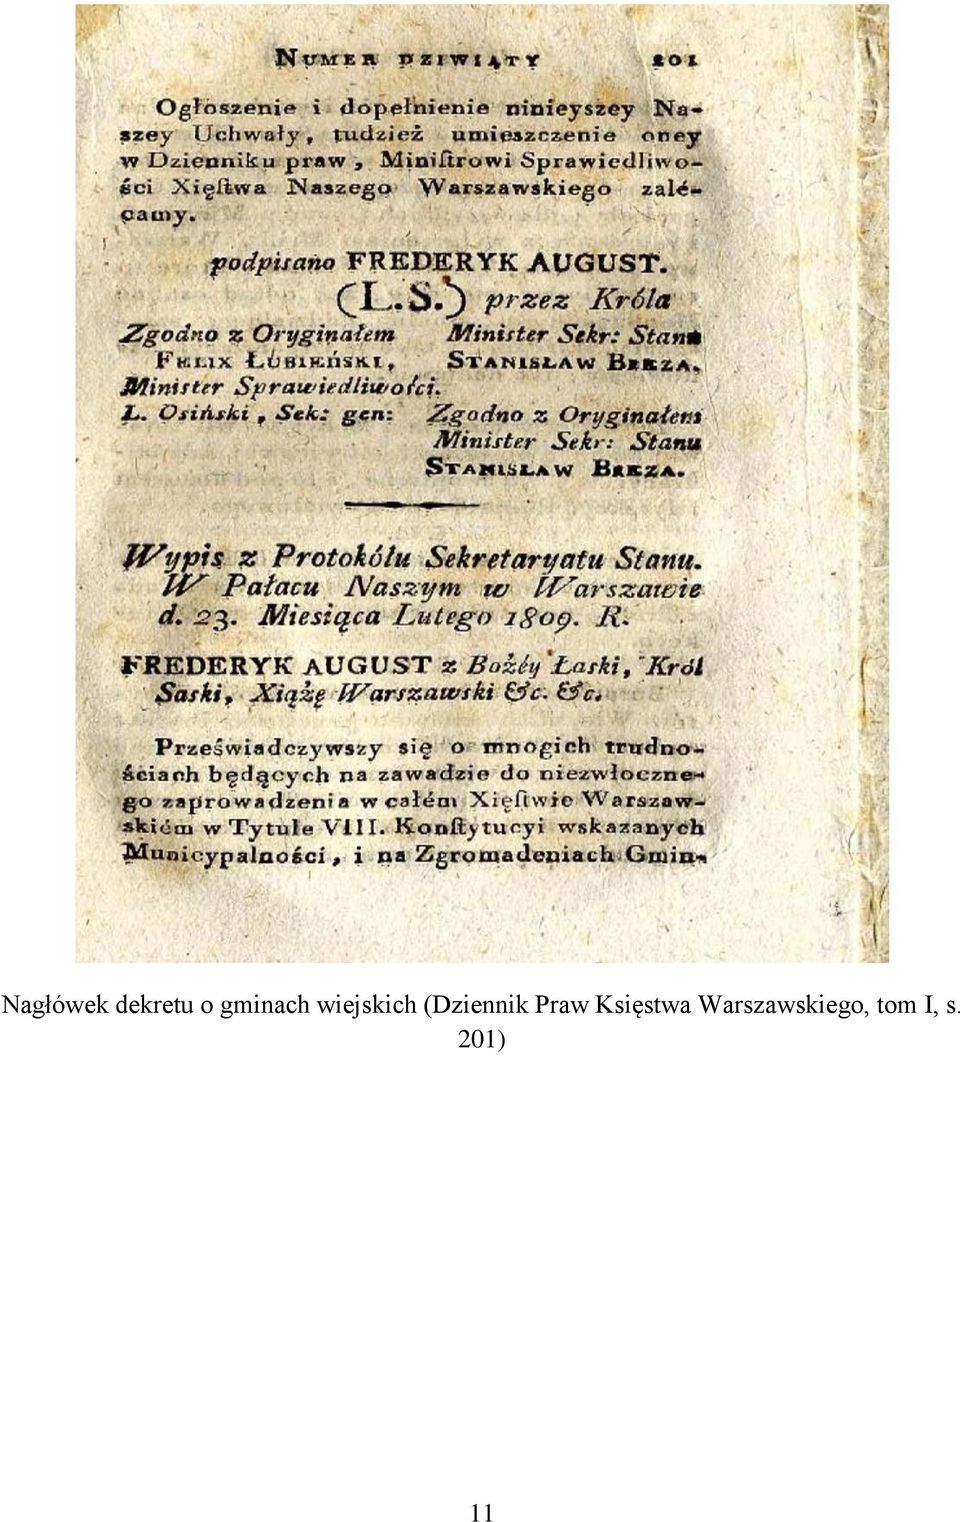 NUMER DZIWIĄTY 201
Ogłoszenie i dopełnienie ninieyszey Na-
szey Uchwały, tudzież umieszczenie oney
w Dzienniku praw, Miniſtrowi Sprawiedliwo-
ści Xięſtwa Naszego Warszawskiego zalé-
camy.
podpisano FREDERYK AUGUST.
(L.S.) przez Króla
Zgodno z Oryginałem Minister Sekr: Stanu
FELIX ŁUBIEŃSKI, STANISŁAW BREZA.
Minister Sprawiedliwoſci.
L. Osiński, Sek: gen: Zgodno z Oryginałem
Minister Sekr: Stanu
STANISŁAW BREZA.
Wypis z Protokółu Sekretaryatu Stanu.
W Pałacu Naszym w Warszawie
d. 23. Miesiąca Lutego 1809. R.
FREDERYK AUGUST z Bożéy Łaski, Król
Saski, Xiążę Warszawski &c. &c.
Przeświadczywszy się o mnogich trudno-
ściach będących na zawadzie do niezwłoczne-
go zaprowadzenia w całém Xięſtwie Warszaw-
skiém w Tytule VIII. Konſtytucyi wskazanych
Municypalności, i na Zgromadeniach Gmin-
Nagłówek dekretu o gminach wiejskich (Dziennik Praw Księstwa Warszawskiego, tom I, s.
201)
11